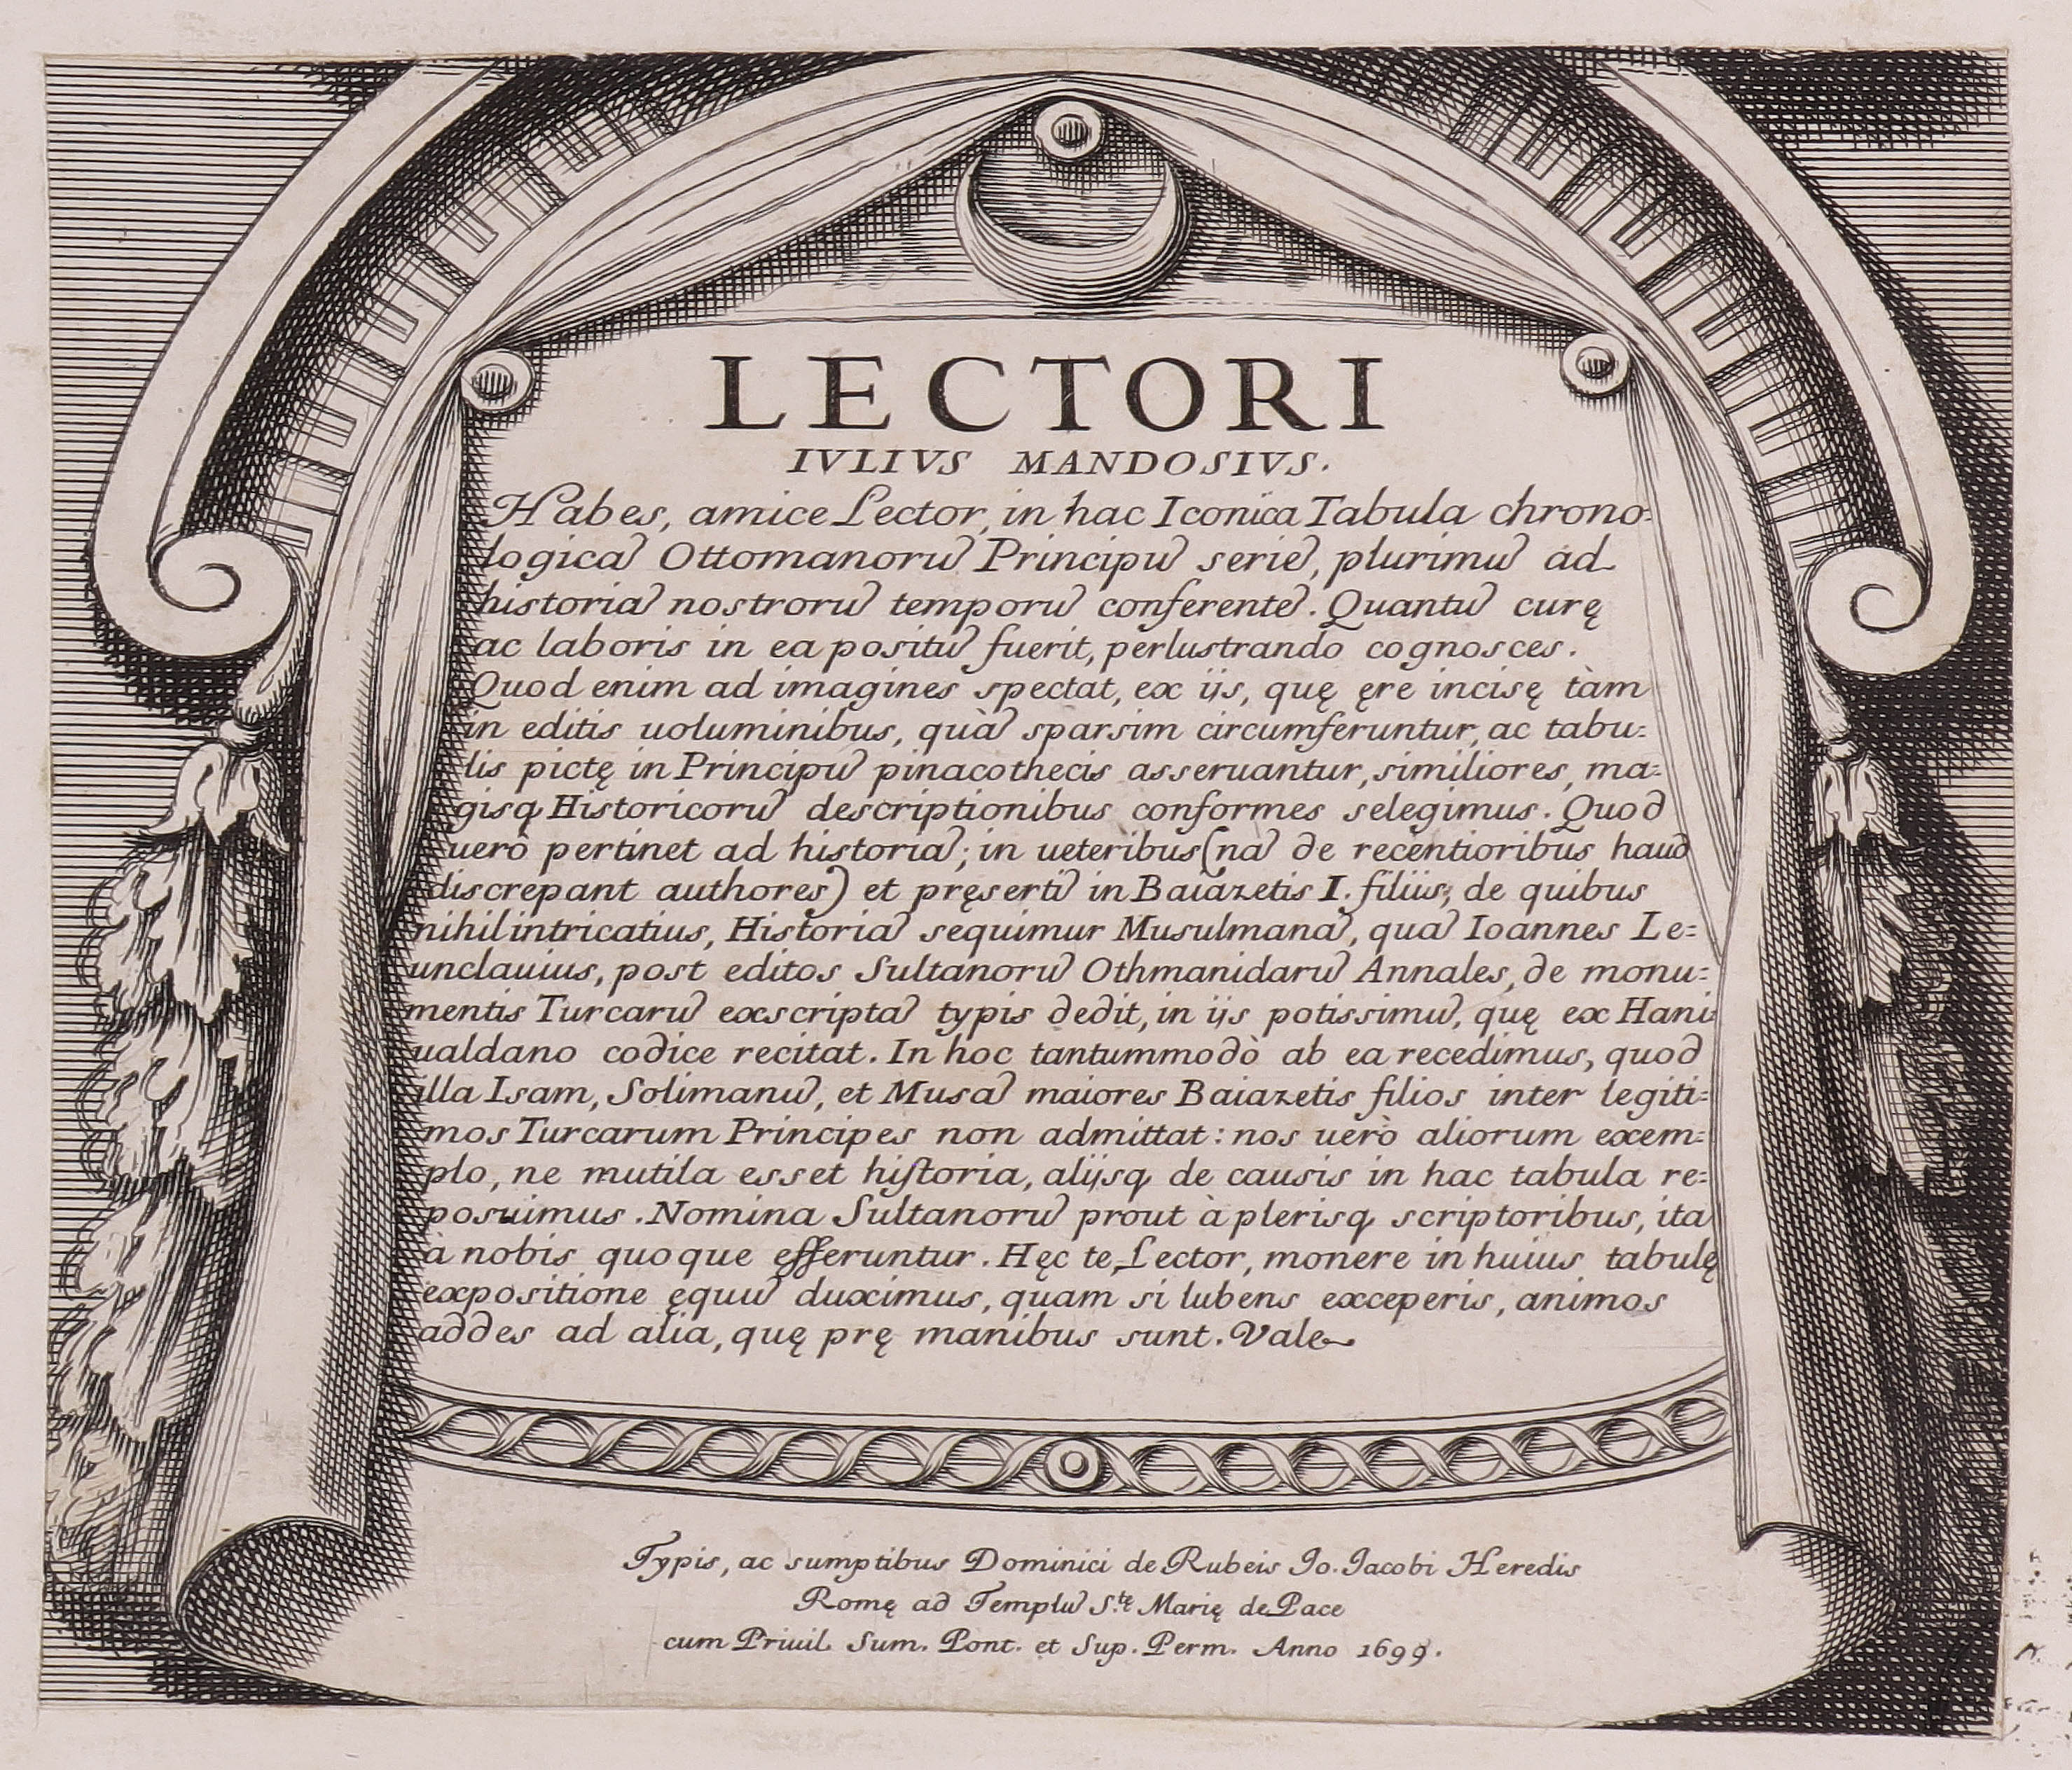 LECTORI
IVLIVS MANDOSIVS.
Habes, amice Lector, in hac Iconica Tabula chrono:
logicã Ottomanorũ Principũ seriẽ, plurimũ ad
historiã nostrorũ temporũ conferentẽ. Quantũ curę
ac laboris in ea positũ fuerit, perlustrando cognosces.
Quod enim ad imagines spectat, ex ijs, quę ęre incisę tàm
in editis uoluminibus, quà̃ sparsim circumferuntur, ac tabu:
lis pictę in Principũ pinacothecis asseruantur, similiores, ma:
gisq Historicorũ descriptionibus conformes selegimus. Quod
uerò pertinet ad historiã; in ueteribus (nã de recentioribus haud
discrepant authores) et pręsertĩ in Baiazetis I. filiis; de quibus
nihil intricatius, Historiã sequimur Musulmanã, quã Ioannes Le=
unclauius, post editos Sultanorũ Othmanidarũ Annales, de monu:
mentis Turcarũ exscriptã typis dedit, in ijs potissimũ, quę ex Hani
ualdano codice recitat. In hoc tantummodò ab ea recedimus, quod
illa Isam, Solimanũ, et Musã maiores Baiazetis filios inter legiti=
mos Turcarum Principes non admittat: nos uerò aliorum exem=
plo, ne mutila esset historia, alijsq de causis in hac tabula re=
posuimus. Nomina Sultanorũ prout à plerisq scriptoribus, ita
à nobis quoque efferuntur. Hęc te, Lector, monere in huius tabulę
expositione ęquũ duximus, quam si lubens exceperis, animos
addes ad alia, quę prę manibus sunt. Vale
Typis, ac sumptibus Dominici de Rubeis Io. Iacobi Heredis
Romę ad Templũ S.tę Marię de Pace
cum Priuil. Sum. Pont. et Sup. Perm. Anno 1699.